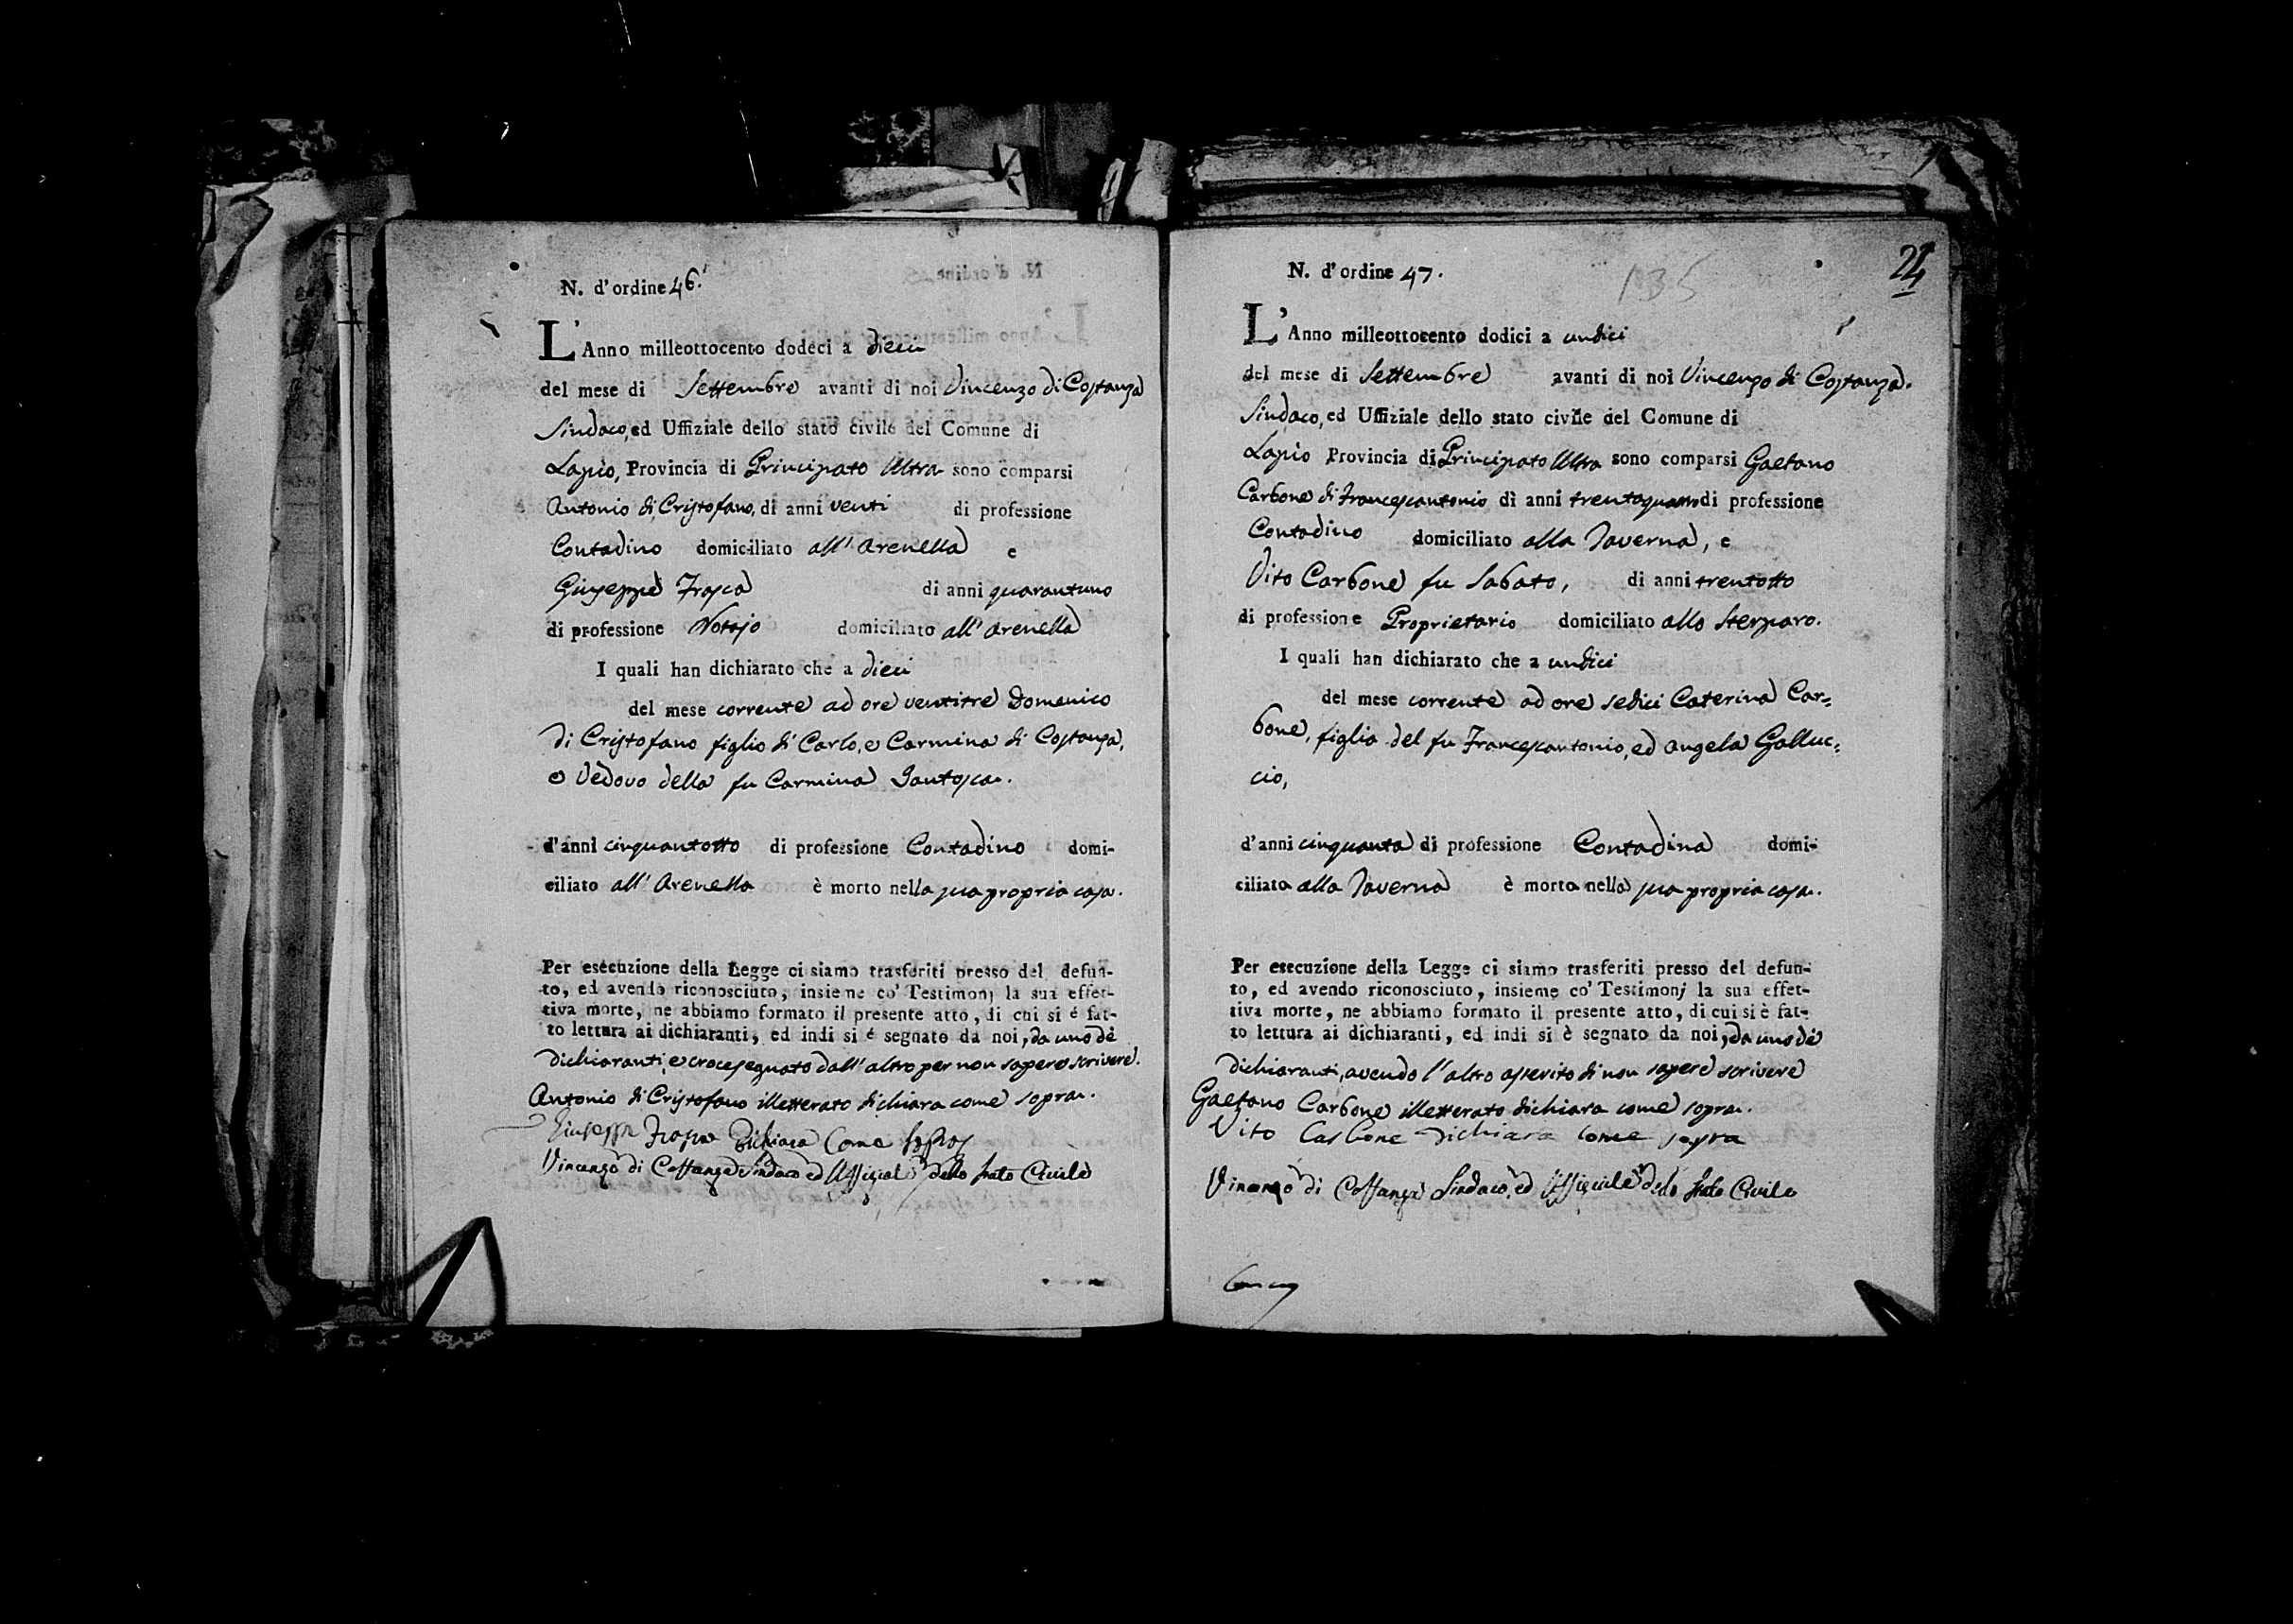 N. d'ordine 46.
L'Anno milleottocento dodeci a dieci
del mese di Settembre avanti di noi Vincenzo di Costanza
Sindaco, ed Uffiziale dello stato civile del Comune di
Lapio, Provincia di Principato Ultra sono comparsi
Antonio di Cristofano, di anni venti di professione
Contadino domiciliato all' Arenella e
Giuseppe Frasca di anni quarantuno
di professione Notajo domiciliato all' Arenella
I quali han dichiarato che a dieci
del mese corrente ad ore ventitre Domenico
di Cristofano figlio di Carlo, e Carmina di Costanza,
e Vedovo della fu Carmina Iantosca.
d'anni cinquantotto di professione Contadino domi-
ciliato all' Arenella è morto nella sua propria casa.
Per esecuzione della Legge ci siamo trasferiti presso del defun-
to, ed avendo riconosciuto, insieme co' Testimonj la sua effet-
tiva morte, ne abbiamo formato il presente atto, di cui si é fat-
to lettura ai dichiaranti, ed indi si é segnato da noi, da uno de'
dichiaranti, e crocesegnato dall' altro per non sapere scrivere.
Antonio di Cristofano illetterato dichiara come sopra.
Giuseppe Frasca Dichiara Come Sopra
Vincenzo di Costanza Sindaco ed Uffiziale dello Stato Civile
N. d'ordine 47.
135
24
L'Anno milleottocento dodici a undici
del mese di Settembre avanti di noi Vincenzo di Costanza.
Sindaco, ed Uffiziale dello stato civile del Comune di
Lapio Provincia di Principato Ultra sono comparsi Gaetano
Carbone di Francescantonio di anni trentaquattro di professione
Contadino domiciliato alla Taverna, e
Vito Carbone fu Sabato, di anni trentotto
di professione Proprietario domiciliato allo Sterparo.
I quali han dichiarato che a undici
del mese corrente ad ore sedici Caterina Car=
bone, figlia del fu Francescantonio, ed Angela Galluc=
cio,
d'anni cinquanta di professione Contadina domi-
ciliata alla Taverna è morta nella sua propria casa.
Per esecuzione della Legge ci siamo trasferiti presso del defun-
to, ed avendo riconosciuto, insieme co' Testimonj la sua effet-
tiva morte, ne abbiamo formato il presente atto, di cui si è fat-
to lettura ai dichiaranti, ed indi si è segnato da noi, da uno de'
dichiaranti, avendo l'altro asserito di non sapere scrivere
Gaetano Carbone illetterato dichiara come sopra.
Vito Carbone dichiara come sopra
Vincenzo di Costanza Sindaco, ed Uffiziale dello Stato Civile